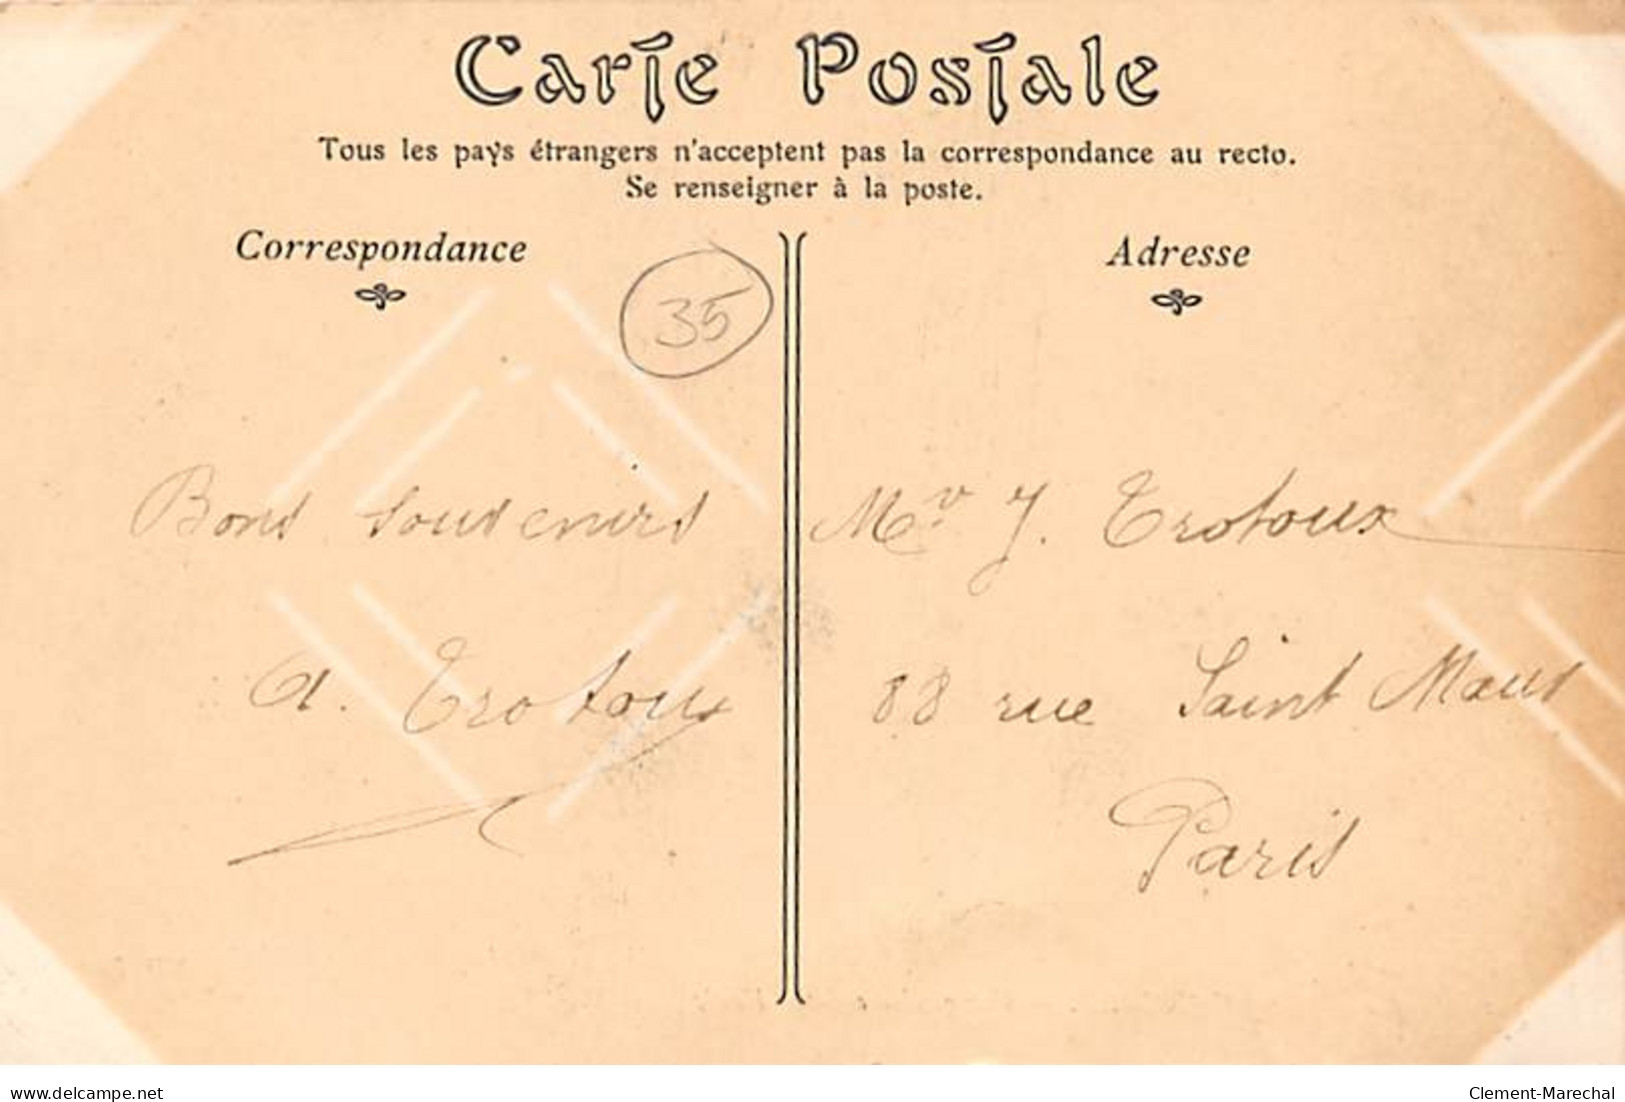 Carte Postale
Tous les pays étrangers n'acceptent pas la correspondance au recto.
Se renseigner à la poste.
Correspondance
35
Bons souvenirs
A. Trotoux
Adresse
Mr J. Trotoux
88 rue Saint Maur
Paris
www.delcampe.net
Clement-Marechal